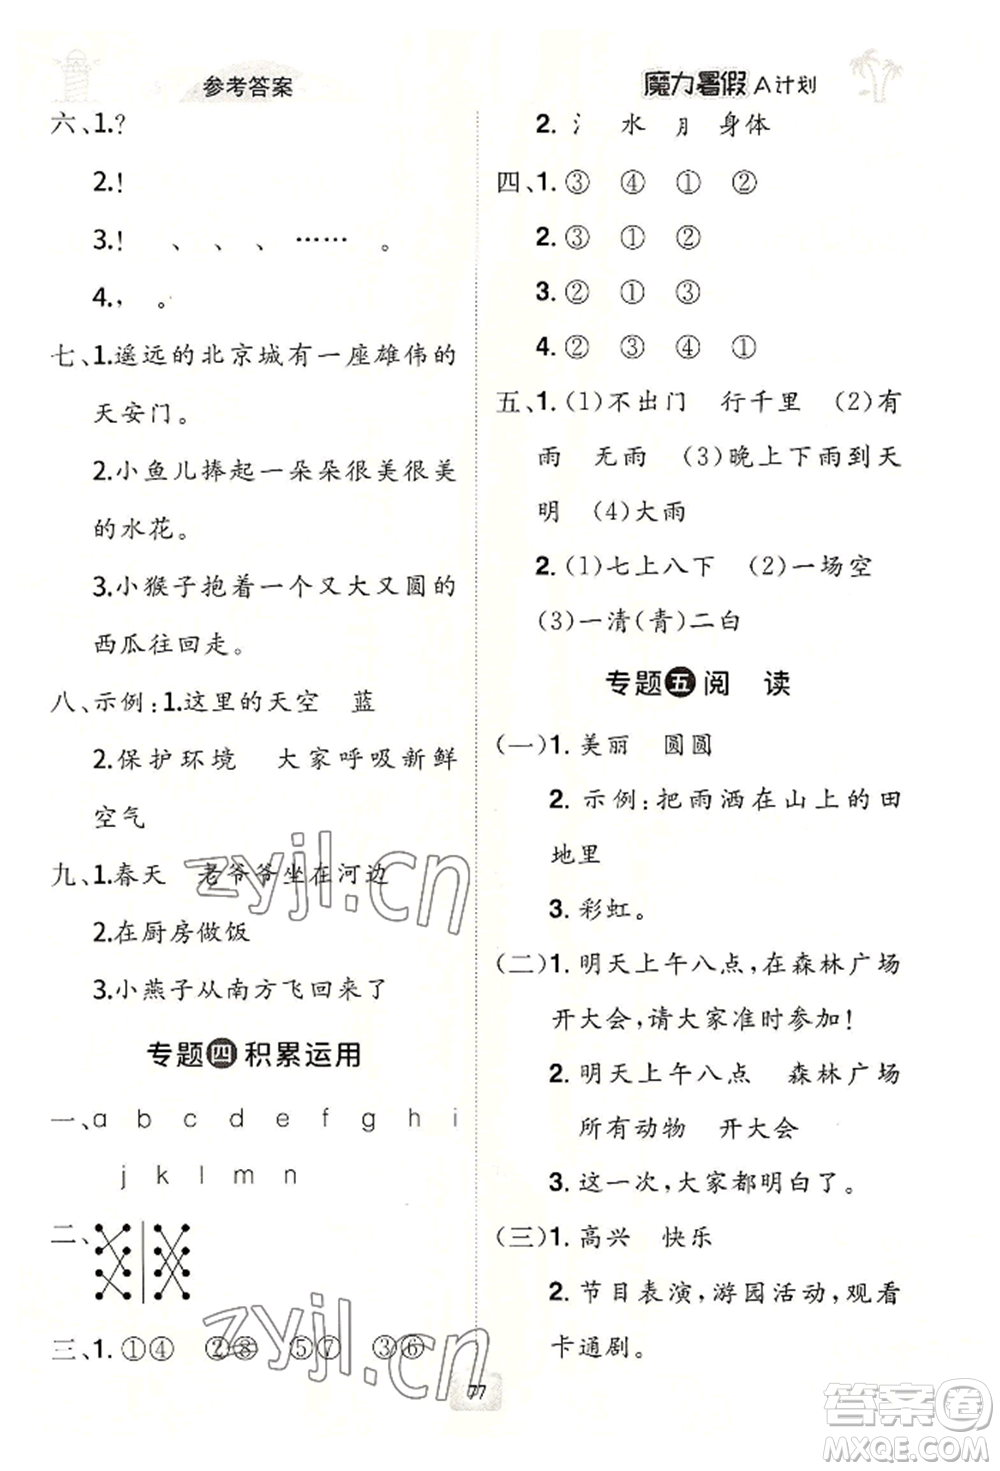 参考答案
六、1.?
2.!
3.! 、 、 、 …… 。
4., 。
七、1.遥远的北京城有一座雄伟的
天安门。
2.小鱼儿捧起一朵朵很美很美
的水花。
3.小猴子抱着一个又大又圆的
西瓜往回走。
八、示例:1.这里的天空 蓝
2.保护环境 大家呼吸新鲜
空气
九、1.春天 老爷爷坐在河边
2.在厨房做饭
3.小燕子从南方飞回来了
专题四 积累运用
一、a b c d e f g h i
j k l m n
二、
三、1. ①④ ②⑧ ⑤⑦ ③⑥
魔力暑假 A计划
2. 氵 水 月 身体
四、1. ③ ④ ① ②
2. ③ ① ②
3. ② ① ③
4. ② ③ ④ ①
五、1.(1)不出门 行千里 (2)有
雨 无雨 (3)晚上下雨到天
明 (4)大雨
2.(1)七上八下 (2)一场空
(3)一清(青)二白
专题五 阅 读
(一)1. 美丽 圆圆
2. 示例:把雨洒在山上的田
地里
3. 彩虹。
(二)1. 明天上午八点,在森林广场
开大会,请大家准时参加!
2. 明天上午八点 森林广场
所有动物 开大会
3. 这一次,大家都明白了。
(三)1. 高兴 快乐
2. 节目表演,游园活动,观看
卡通剧。
77
zyjl.cn
zyjl.cn
答案卷
MXQE.COM